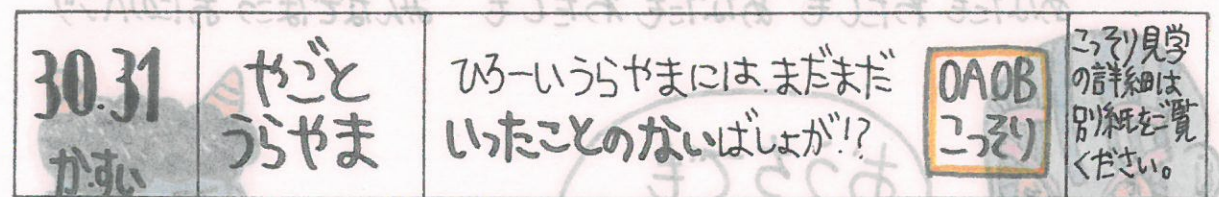 30.31
か.すい
やごと
うらやま
ひろーいうらやまには.まだまだ
いったことのないばしょが!?
OAOB
こっそり
こっそり見学
の詳細は
別紙をご覧
ください。
おうちでも